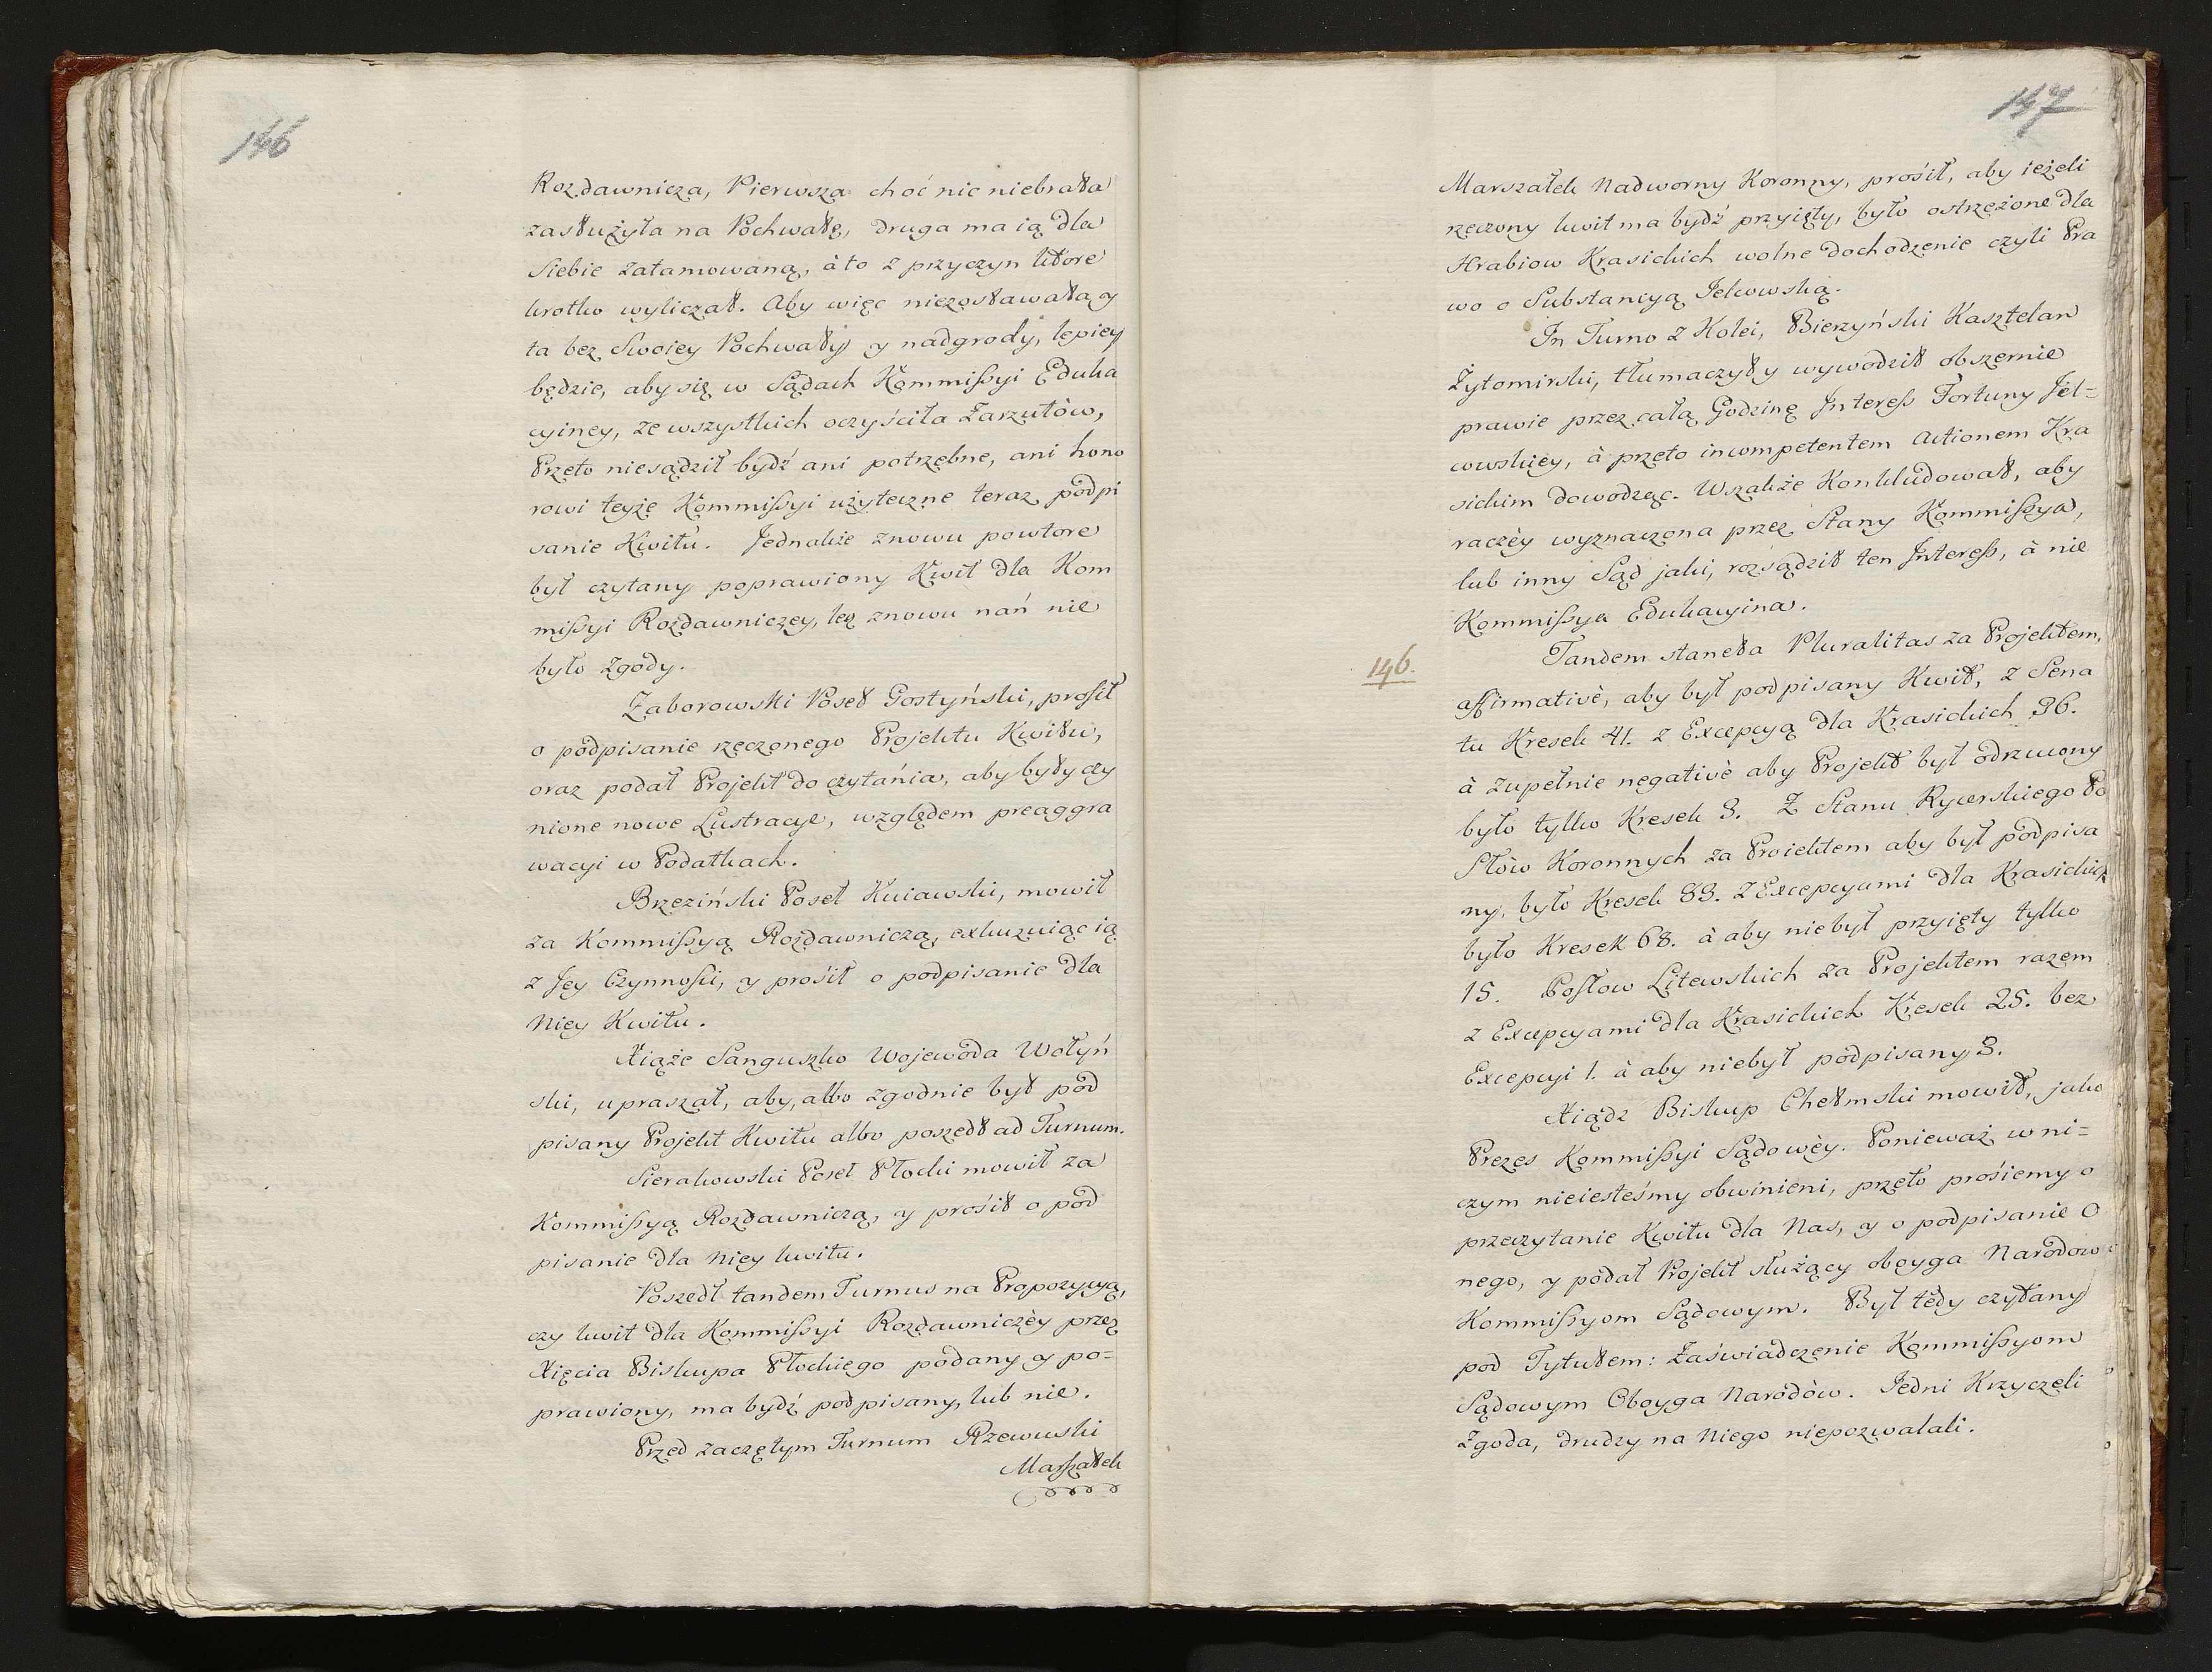 146
Rozdawnicza, Pierwsza choć nic niebrała
zasłużyła na Pochwałę, druga ma ią dla
Siebie zatamowaną, à to z przyczyn ktore
krotko wyliczał. Aby więc niezostawała y
ta bez Swoiey Pochwały y nadgrody, lepiey
będzie, aby się w Sądach Kommißyi Eduka
cyiney, ze wszystkich oczyściła Zarzutòw,
Przeto niesądził bydź ani potrzebne, ani hono
rowi teyże Kommißyi użyteczne teraz podpi
sanie Kwitu. Jednakże znowu powtore
był czytany poprawiony Kwit dla Kom
mißyi Rozdawniczey, lecz znowu nań nie
było zgody.
Zaborowski Poseł Gostyński, prosił
o podpisanie rzeczonego Projektu Kwitu,
oraz podał Projekt do czytánia, aby były czy
nione nowe Lustracye, względem preaggra
wacyi w Podatkach.
Brzeziński Poseł Kuiawski, mowił
za Kommißyą Rozdawniczą, exkuzuiąc ią
z Jey Czynności, y prośił o podpisanie dla
Niey Kwitu.
Xiąże Sanguszko Wojewoda Wołyń
ski, upraszał, aby, albo zgodnie był pod
pisany Projekt Kwitu albo poszedł ad Turnum.
Sierakowski Poseł Płocki mowił za
Kommißyą Rozdawniczą, y prośił o pod
pisanie dla Niey kwitu.
Poszedł tandem Turnus na Propozycyą,
czy kwit dla Kommißyi Rozdawniczèy przez
Xięcia Biskupa Płockiego podany y po=
prawiony, ma bydź podpisany, lub nie.
Przed zaczętym Turnum Rzewuski
Marszałek
147
Marszałek Nadworny Koronny, prośił, aby ieżeli
rzeczony kwit ma bydź przyięty, było ostrzeżone dla
Hrabiow Krasickich wolne dochodzenie czyli Pra
wo o Substancyą Jełowską.
In Turno z Kolei, Bierzyński Kasztelan
Żytomirski, tłumaczył y wywodził obszernie
prawie przez całą Godzinę Intereß Fortuny Jeł=
owskiey, à przeto incompetentem Actionem Kra
sickim dowodząc. Wszakże Konkludował, aby
raczèy wyznaczona przez Stany Kommißya,
lub inny Sąd jaki, rozsądził ten Intereß, à nie
Kommißya Edukacyina.
146.
Tandem staneła Pluralitas za Projektem,
affirmativè, aby był podpisany Kwit, z Sena
tu Kresek 41. z Excepcyą dla Krasickich 36.
à zupełnie negativè aby Projekt był odrzucony
było tylko Kresek 3. Z Stanu Rycerskiego Po
słòw Koronnych za Proiektem aby był podpisa
ny, było Kresek 83. z Excepcyami dla Krasickich
było Kresek 68. à aby niebył przyięty tylko
15. Posłow Litewskich za Projektem razem
z Excepcyami dla Krasickich Kresek 25. bez
Excepcyi 1. à aby niebył podpisany 3.
Xiądz Biskup Chełmski mowił, jako
Prezes Kommißyi Sądowèy. Ponieważ w ni=
czym nieiesteśmy obwinieni, przeto prośiemy o
przeczytanie Kwitu dla Nas, y o podpisanie O
nego, y podał Projekt służący oboyga Narodow
Kommißyom Sądowym. Był tèdy czytány
pod Tytułem: Zaświádczenie Kommißyom
Sądowym Oboyga Narodòw. Jedni Krzyczeli
Zgoda, drudzy na Niego niepozwalali.